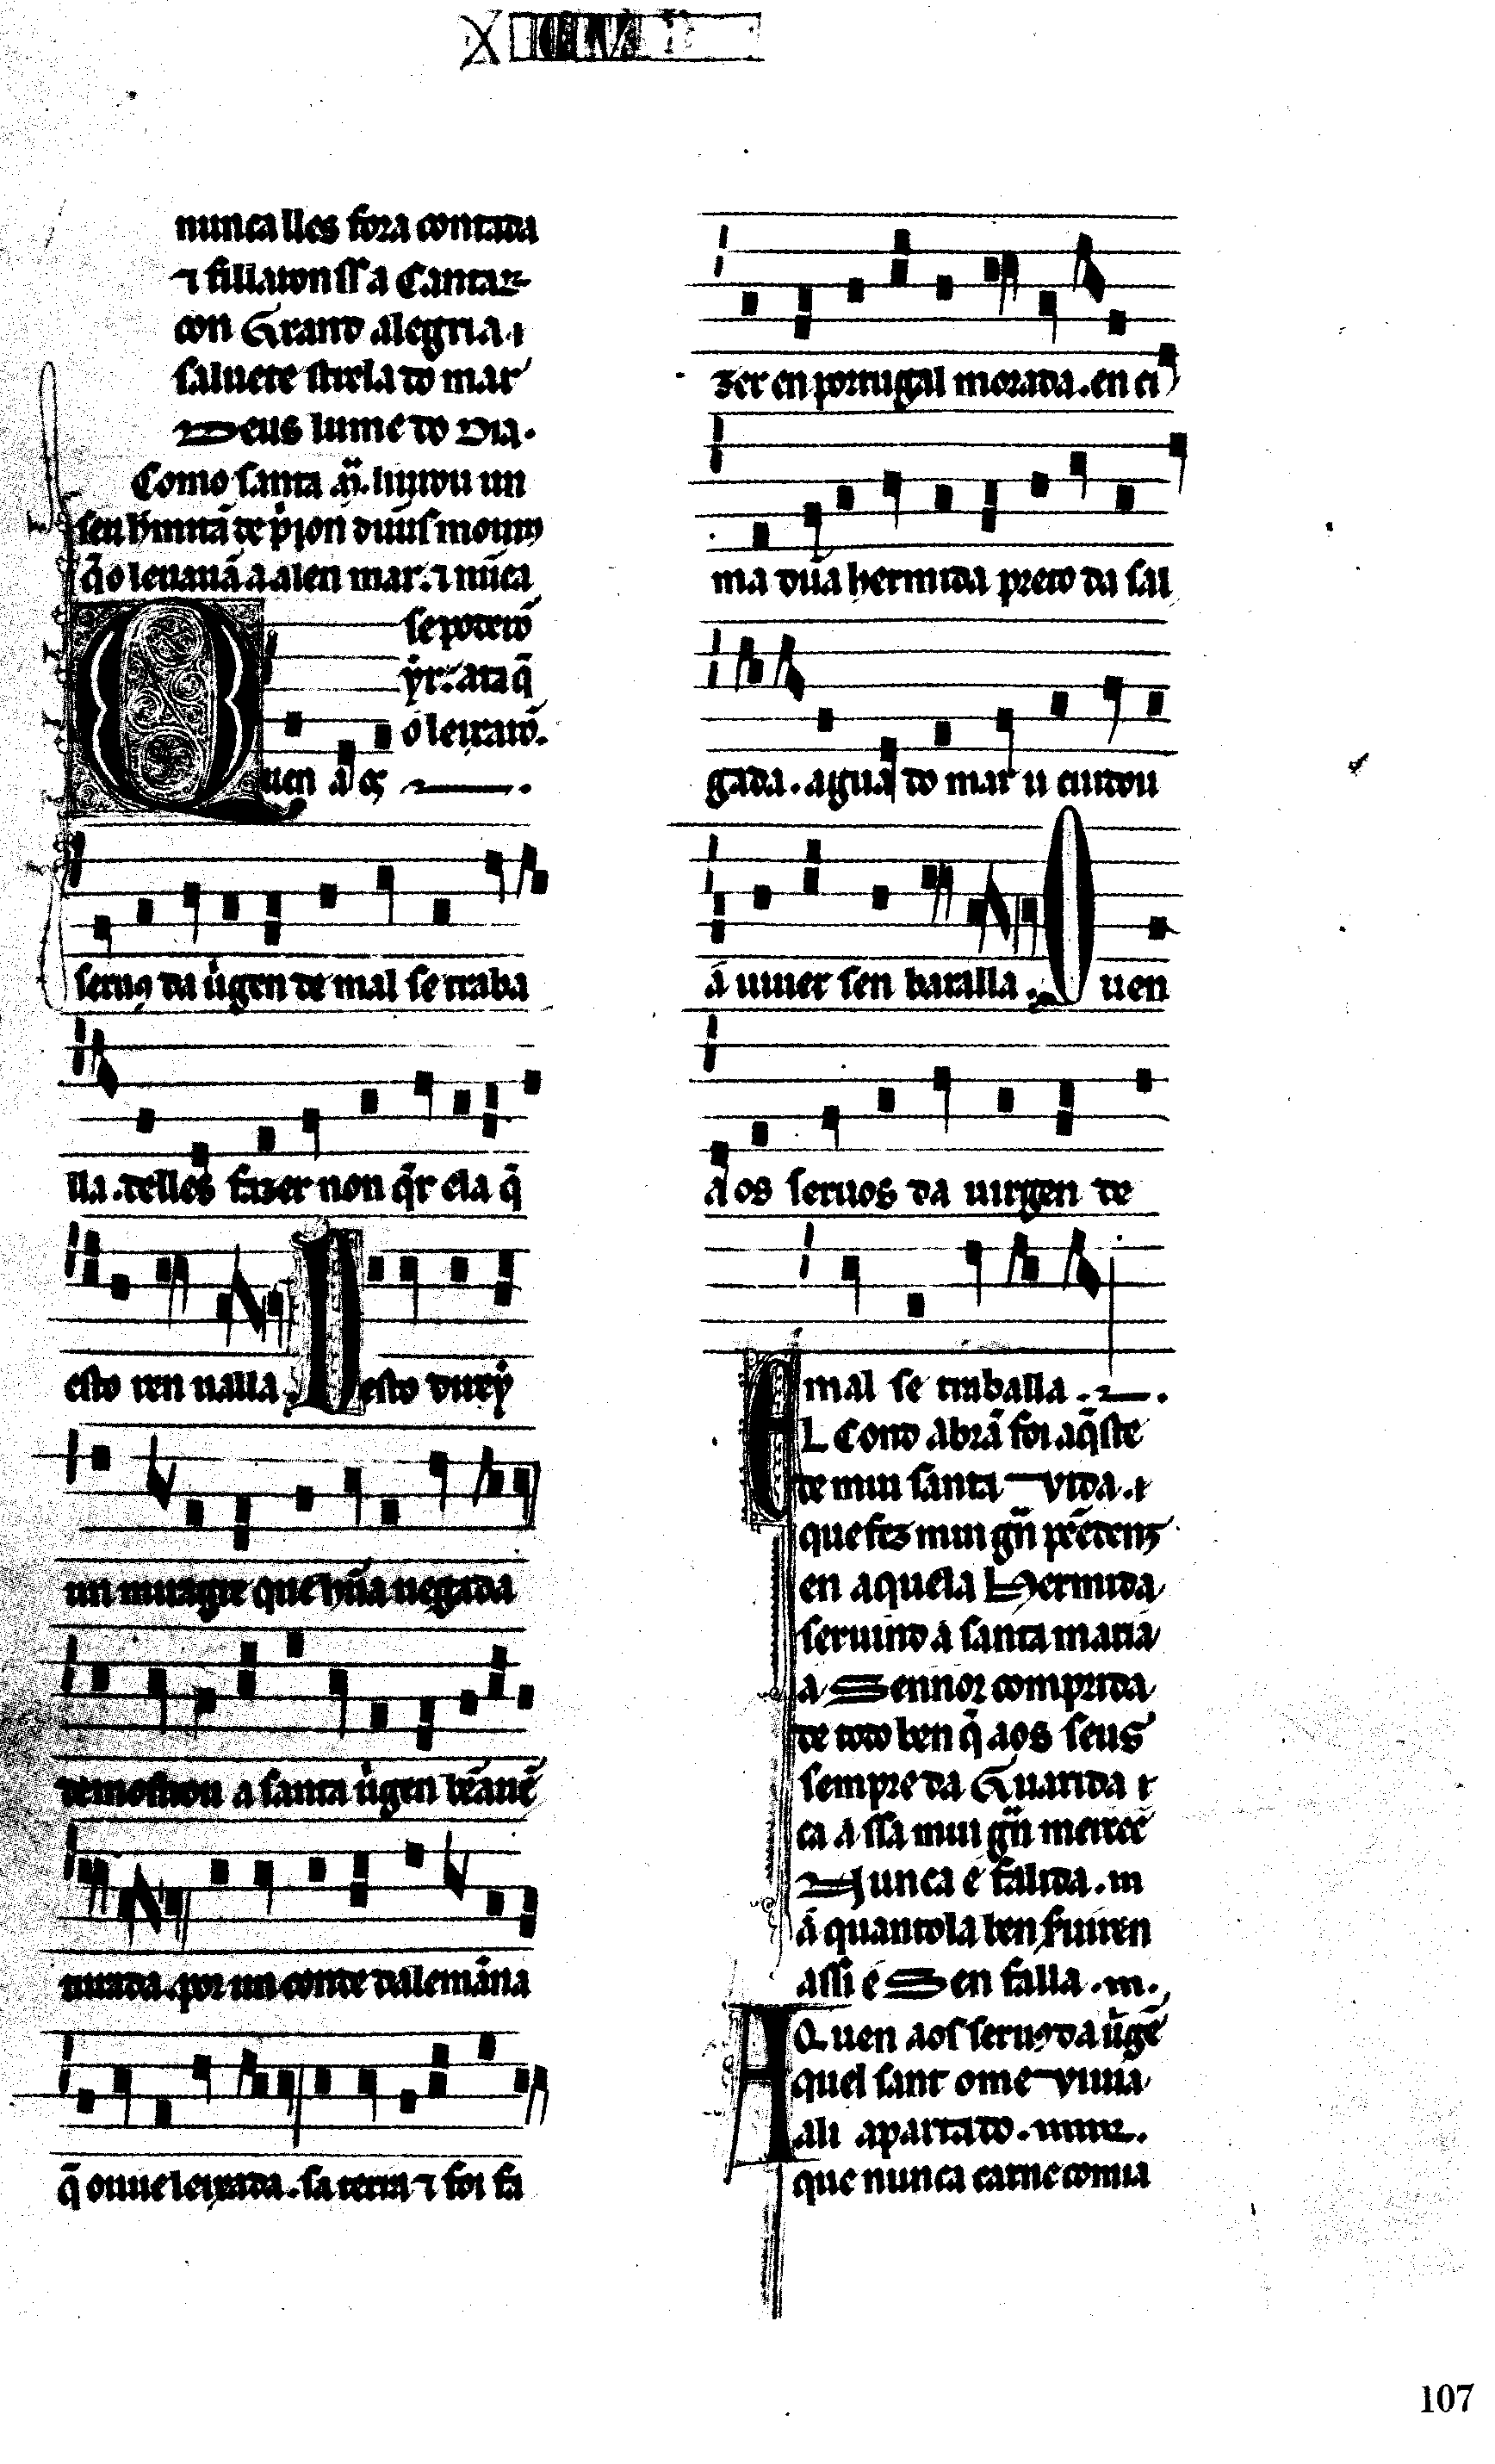 nunca lles fora contada
⁊ fillaronss a Cantar
con Grand alegria.
saluete strela do mar
Deus lume do Dia.
Como santa . liurou un
seu de priion
q̃ o leuauã a alen mar. ⁊ nũca
se poderõ
yr. ata q̃
o leixarõ.
Quen a os
seruos da uirgen de mal se traba
lla. delles fazer non q̃r ela q̃
esto ren ualla. Desto dun rey
un miragre que hũa uegada
demostrou a santa uirgen bẽauẽ
turada. por un conde dalemãna
q̃ ouue leixada. sa terra ⁊ foi fa
zer en portugal morada. en ci
ma dũa hermida preto da sal
gada. agua do mar u cuidou
á uiuer sen baralla. Quen
a os seruos da uirgen de
mal se traballa.
EL Cond Abrã foi aq̃ste
de mui santa vida.
que fez mui
en aquela Hermida
seruind a santa maria
a Sennor comprida
de todo ben q̃ aos seus
sempre da Guarida
ca a ssa mui merece
Nunca é falida.
á quantola ben
assi é Sen falla.
Quen aos seruos da uirgẽ
Aquel sant ome viuia
ali apartado.
que nunca carne comia
107